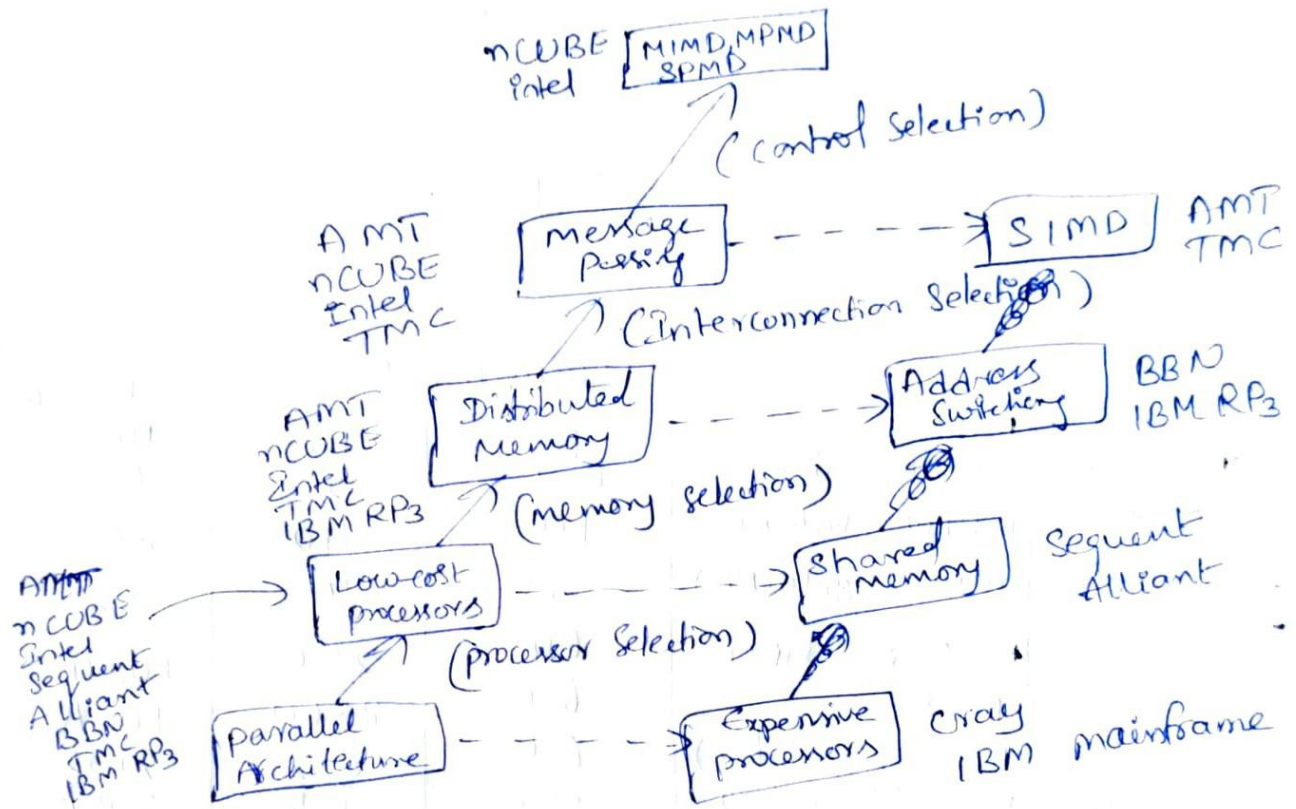 nCUBE
intel
MIMD, MPMD
SPMD
(control selection)
AMT
nCUBE
Intel
TMC
Message
Passing
SIMD
AMT
TMC
(Interconnection Selection)
AMT
nCUBE
Intel
TMC
IBM RP3
Distributed
Memory
Address
Switching
BBN
IBM RP3
(memory selection)
AMT
nCUBE
Intel
Sequent
Alliant
BBN
TMC
IBM RP3
Low-cost
processors
Shared
memory
Sequent
Alliant
(processor selection)
parallel
Architecture
Expensive
processors
Cray
IBM mainframe